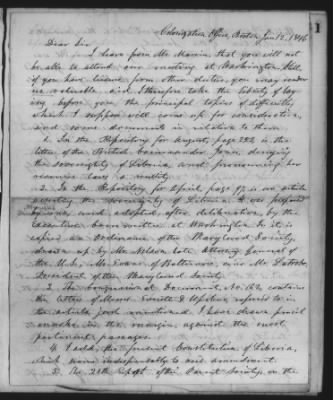 Colonization Office, Boston, Jan. 15, 1846
Dear Sir,
I learn from Mr. that you will not
be able to attend our meeting at Washington. Still,
if you have leisure from other duties, you may render
us valuable aid. I therefore take the liberty of lay-
ing before you the principal topics of difficulty,
which I suppose will come up for consideration,
and some documents in relation to them.
1. In the Repository for August, page is the
letter of the British Commander Jones, denying
the sovereignty of Liberia, and pronouncing her
revenue laws a nullity.
2. In the Repository for April, page 97, is an article
asserting the sovereignty of Liberia. It was prepared
by me, and adopted, after deliberation, by the
Executive Committee at Washington. In it is
copied an Ordinance of the Maryland Society,
drawn up by Mr. Nelson, late Attorney General of
the U.S., Mr. Evans of Baltimore, and Mr. Latrobe,
President of the Maryland Society.
3. The Congressional Document, No. 162, contains
the letters of Messrs. Everett & Upshur, referred to in
the article just mentioned. I have drawn pencil
marks in the margin against the most
pertinent passages.
4. I add, the present Constitution of Liberia,
which needs indispensably to amendment.
5. The 28th Report of the Parent Society, on the